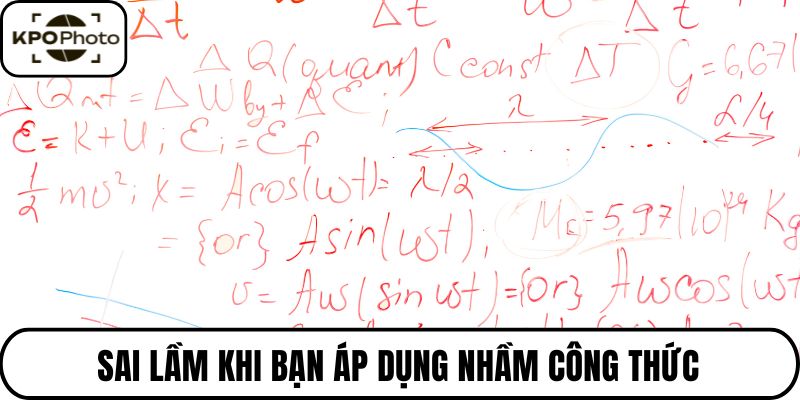 KPOPhoto
Δt
Δt
Δt
ΔQ(quant) C const ΔT G = 6,67(
ΔQ = ΔW by + ΔE;
λ
λ/4
ε = K + U; εi = εf
1/2 mv²; x = Acos(wt) = λ/2
= {or} Asin(wt);
Me = 5,97(10)²⁴ Kg
v = Aw(sin wt) = {or} Awcos(wt
SAI LẦM KHI BẠN ÁP DỤNG NHẦM CÔNG THỨC